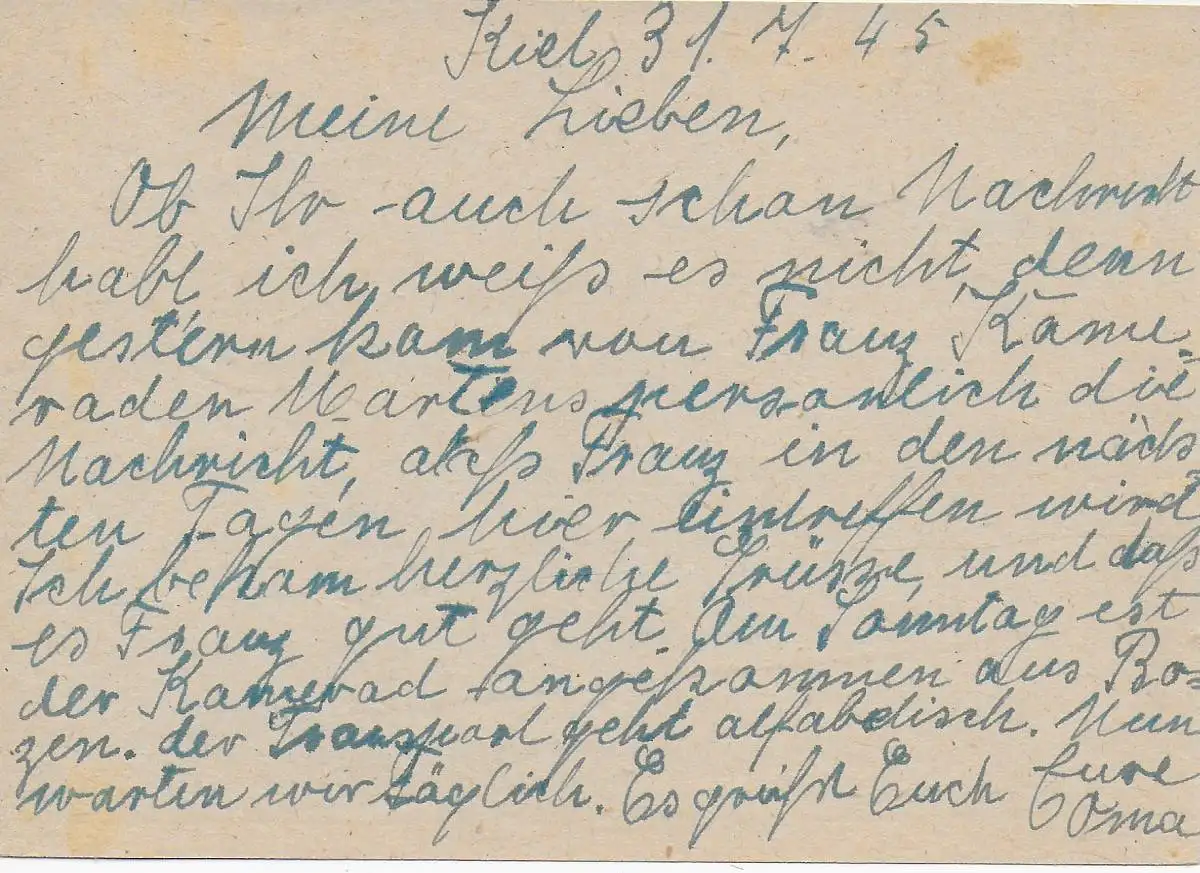 Kiel 31. 7. 45
Meine Lieben,
Ob Ihr auch schon Nachricht
habt, ich weiß es nicht, denn
gestern kam von Franz Kame-
raden Martens persönlich die
Nachricht, daß Franz in den nächs-
ten Tagen hier eintreffen wird
Ich bekam herzliche Grüsze, und daß
es Franz gut geht. Am Sonntag ist
der Kamerad angekommen aus Bo-
zen. der Transport geht alfabedisch. Nun
warten wir täglich. Es grüßt Euch Eure
Oma